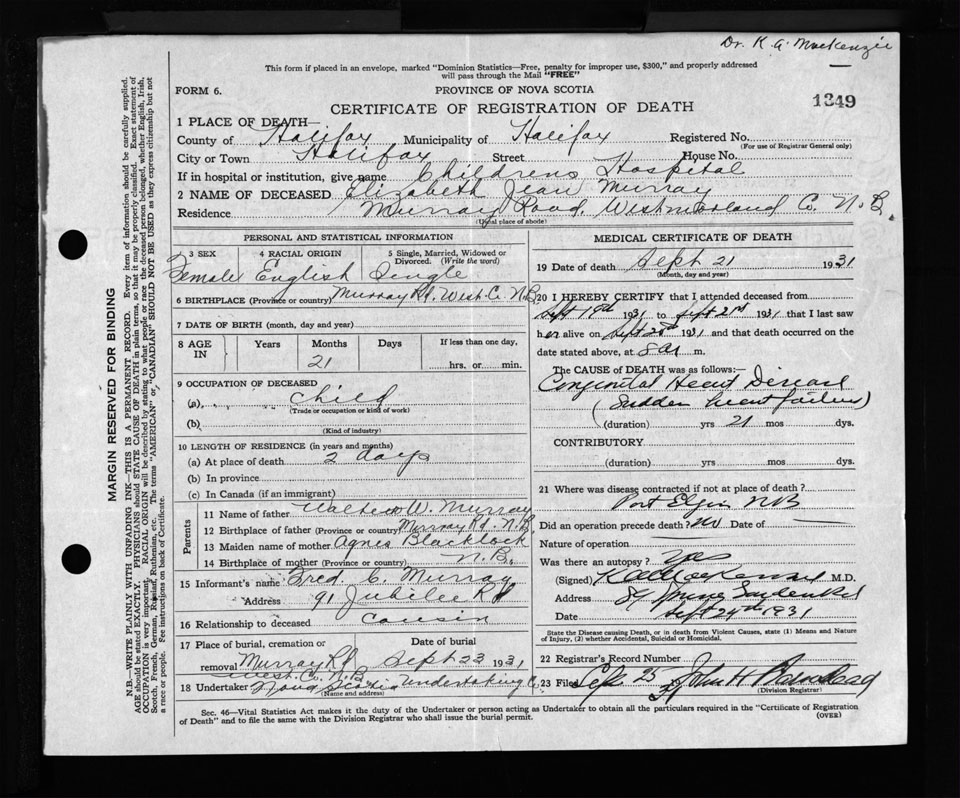 Dr. K. A. MacKenzie
This form if placed in an envelope, marked "Dominion Statistics—Free, penalty for improper use, $300," and properly addressed
will pass through the Mail "FREE"
FORM 6.
PROVINCE OF NOVA SCOTIA
CERTIFICATE OF REGISTRATION OF DEATH
1349
1 PLACE OF DEATH—
County of Halifax Municipality of Halifax Registered No.
(For use of Registrar General only)
City or Town Halifax Street House No.
If in hospital or institution, give name Childrens Hospital
2 NAME OF DECEASED Elizabeth Jean Murray
Residence Murray Road, Westmorland Co. N.B.
(Usual place of abode)
PERSONAL AND STATISTICAL INFORMATION
3 SEX 4 RACIAL ORIGIN 5 Single, Married, Widowed or Divorced. (Write the word)
Female English Single
6 BIRTHPLACE (Province or country) Murray Rd. West. Co. N.B.
7 DATE OF BIRTH (month, day and year)
8 AGE IN Years Months Days If less than one day,
21 hrs. or min.
9 OCCUPATION OF DECEASED
(a) child
(Trade or occupation or kind of work)
(b)
(Kind of industry)
10 LENGTH OF RESIDENCE (in years and months)
(a) At place of death 2 days
(b) In province
(c) In Canada (if an immigrant)
Parents
11 Name of father W. Murray
12 Birthplace of father (Province or country) Murray Rd. N.B.
13 Maiden name of mother Agnes Blacklock
14 Birthplace of mother (Province or country) N.B.
15 Informant's name Fred. C. Murray
Address 91 Jubilee Rd
16 Relationship to deceased cousin
17 Place of burial, cremation or Date of burial
removal Murray Rd. Sept 23 1931
West. Co. N.B.
18 Undertaker Nova Scotia Undertaking Co.
(Name and address)
MEDICAL CERTIFICATE OF DEATH
19 Date of death Sept 21 1931
(Month, day and year)
20 I HEREBY CERTIFY that I attended deceased from
Sept 19th 1931 to Sept 21st 1931 that I last saw
her alive on Sept 1931 and that death occurred on the
date stated above, at 8 a m.
The CAUSE of DEATH was as follows:—
Congenital Heart Disease
(Sudden heart failure)
(duration) yrs 21 mos dys.
CONTRIBUTORY
(duration) yrs mos dys.
21 Where was disease contracted if not at place of death?
Port Elgin NB
Did an operation precede death? No Date of
Nature of operation
Was there an autopsy? Yes
(Signed) K A MacKenzie M.D.
Address 84 Spring Garden Rd
Date Sept 24th 1931
State the Disease causing Death, or in death from Violent Causes, state (1) Means and Nature
of Injury, (2) whether Accidental, Suicidal or Homicidal.
22 Registrar's Record Number
23 Filed Sep. 25 John H
(Division Registrar)
Sec. 46—Vital Statistics Act makes it the duty of the Undertaker or person acting as Undertaker to obtain all the particulars required in the "Certificate of Registration
of Death" and to file the same with the Division Registrar who shall issue the burial permit.
(OVER)
MARGIN RESERVED FOR BINDING
N.B.—WRITE PLAINLY WITH UNFADING INK—THIS IS A PERMANENT RECORD. Every item of information should be carefully supplied.
AGE should be stated EXACTLY. PHYSICIANS should STATE CAUSE OF DEATH in plain terms, so that it may be properly classified. Exact statement of
OCCUPATION is very important. RACIAL ORIGIN will be described by stating to what people or race the deceased person belonged, whether English, Irish,
Scotch, French, German, Russian, Ruthenian, etc. The terms "AMERICAN" or "CANADIAN" SHOULD NOT BE USED as they express citizenship but not
a race or people. Fee instructions on back of Certificate.